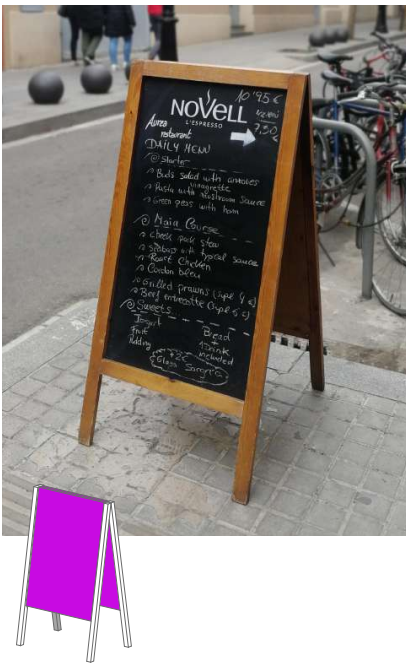 10'95€
NOVELL
L'ESPRESSO
Aurea
restaurant
7,50
€
DAILY MENU
@ Starter
Buds salad with anchoves
vinagrette
Pasta with mushroom sauce
Green peas with ham
@ Main Course
cheek pork stew
Seabass with typical sauce
Roast Chicken
Cordon bleu
Grilled prawns (supl 4 €)
Beef entrecotte (supl 6 €)
@ Sweets
Iogurt
Fruit
Pudding
Bread
+
Drink
included
+2€
Glass Sangria